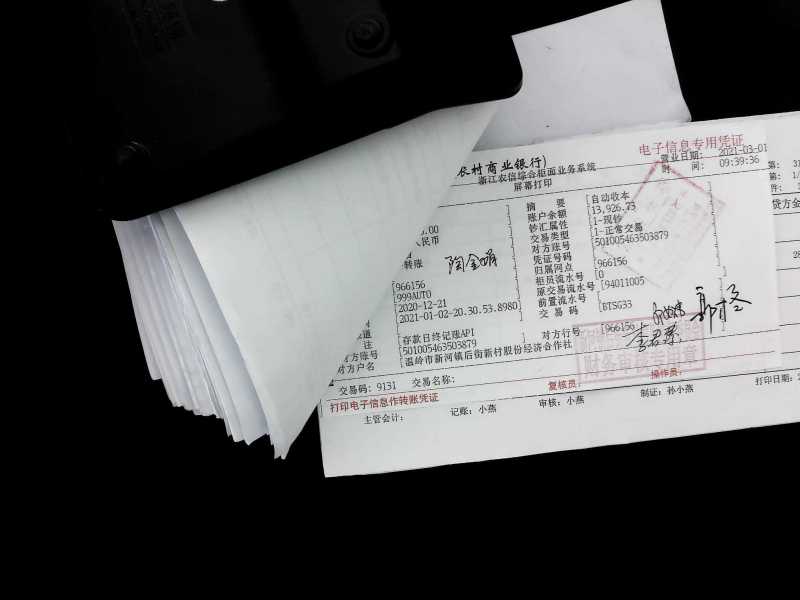 电子信息专用凭证
农村商业银行)
浙江农信综合柜面业务系统
屏幕打印
营业日期: 2021-03-01
时 间: 09:39:36
摘 要 [自动收本
账户余额 [13,926.73
钞汇属性 [1-现钞
交易类型 [1-正常交易
对方账号 [501005463503879
凭证号码
归属网点 [966156
柜员流水号 [0
原交易流水号 [94011005
前置流水号
交 易 码 [BTSG33
.00
民币
转账
陶金娟
[966156
[999AUTO
[2020-12-21
[2021-01-02-20.30.53.8980]
道 [存款日终记账API
注 [501005463503879
对方行号 [966156
方账号
对方户名 [温岭市新河镇后街新村股份经济合作社
财务审核专用章
交易码: 9131 交易名称:
复核员:
操作员:
打印电子信息作转账凭证
主管会计:
记账: 小燕
审核: 小燕
制证: 孙小燕
打印日期: 2
第: 31
第: 1/
件: 3
贷方金
28